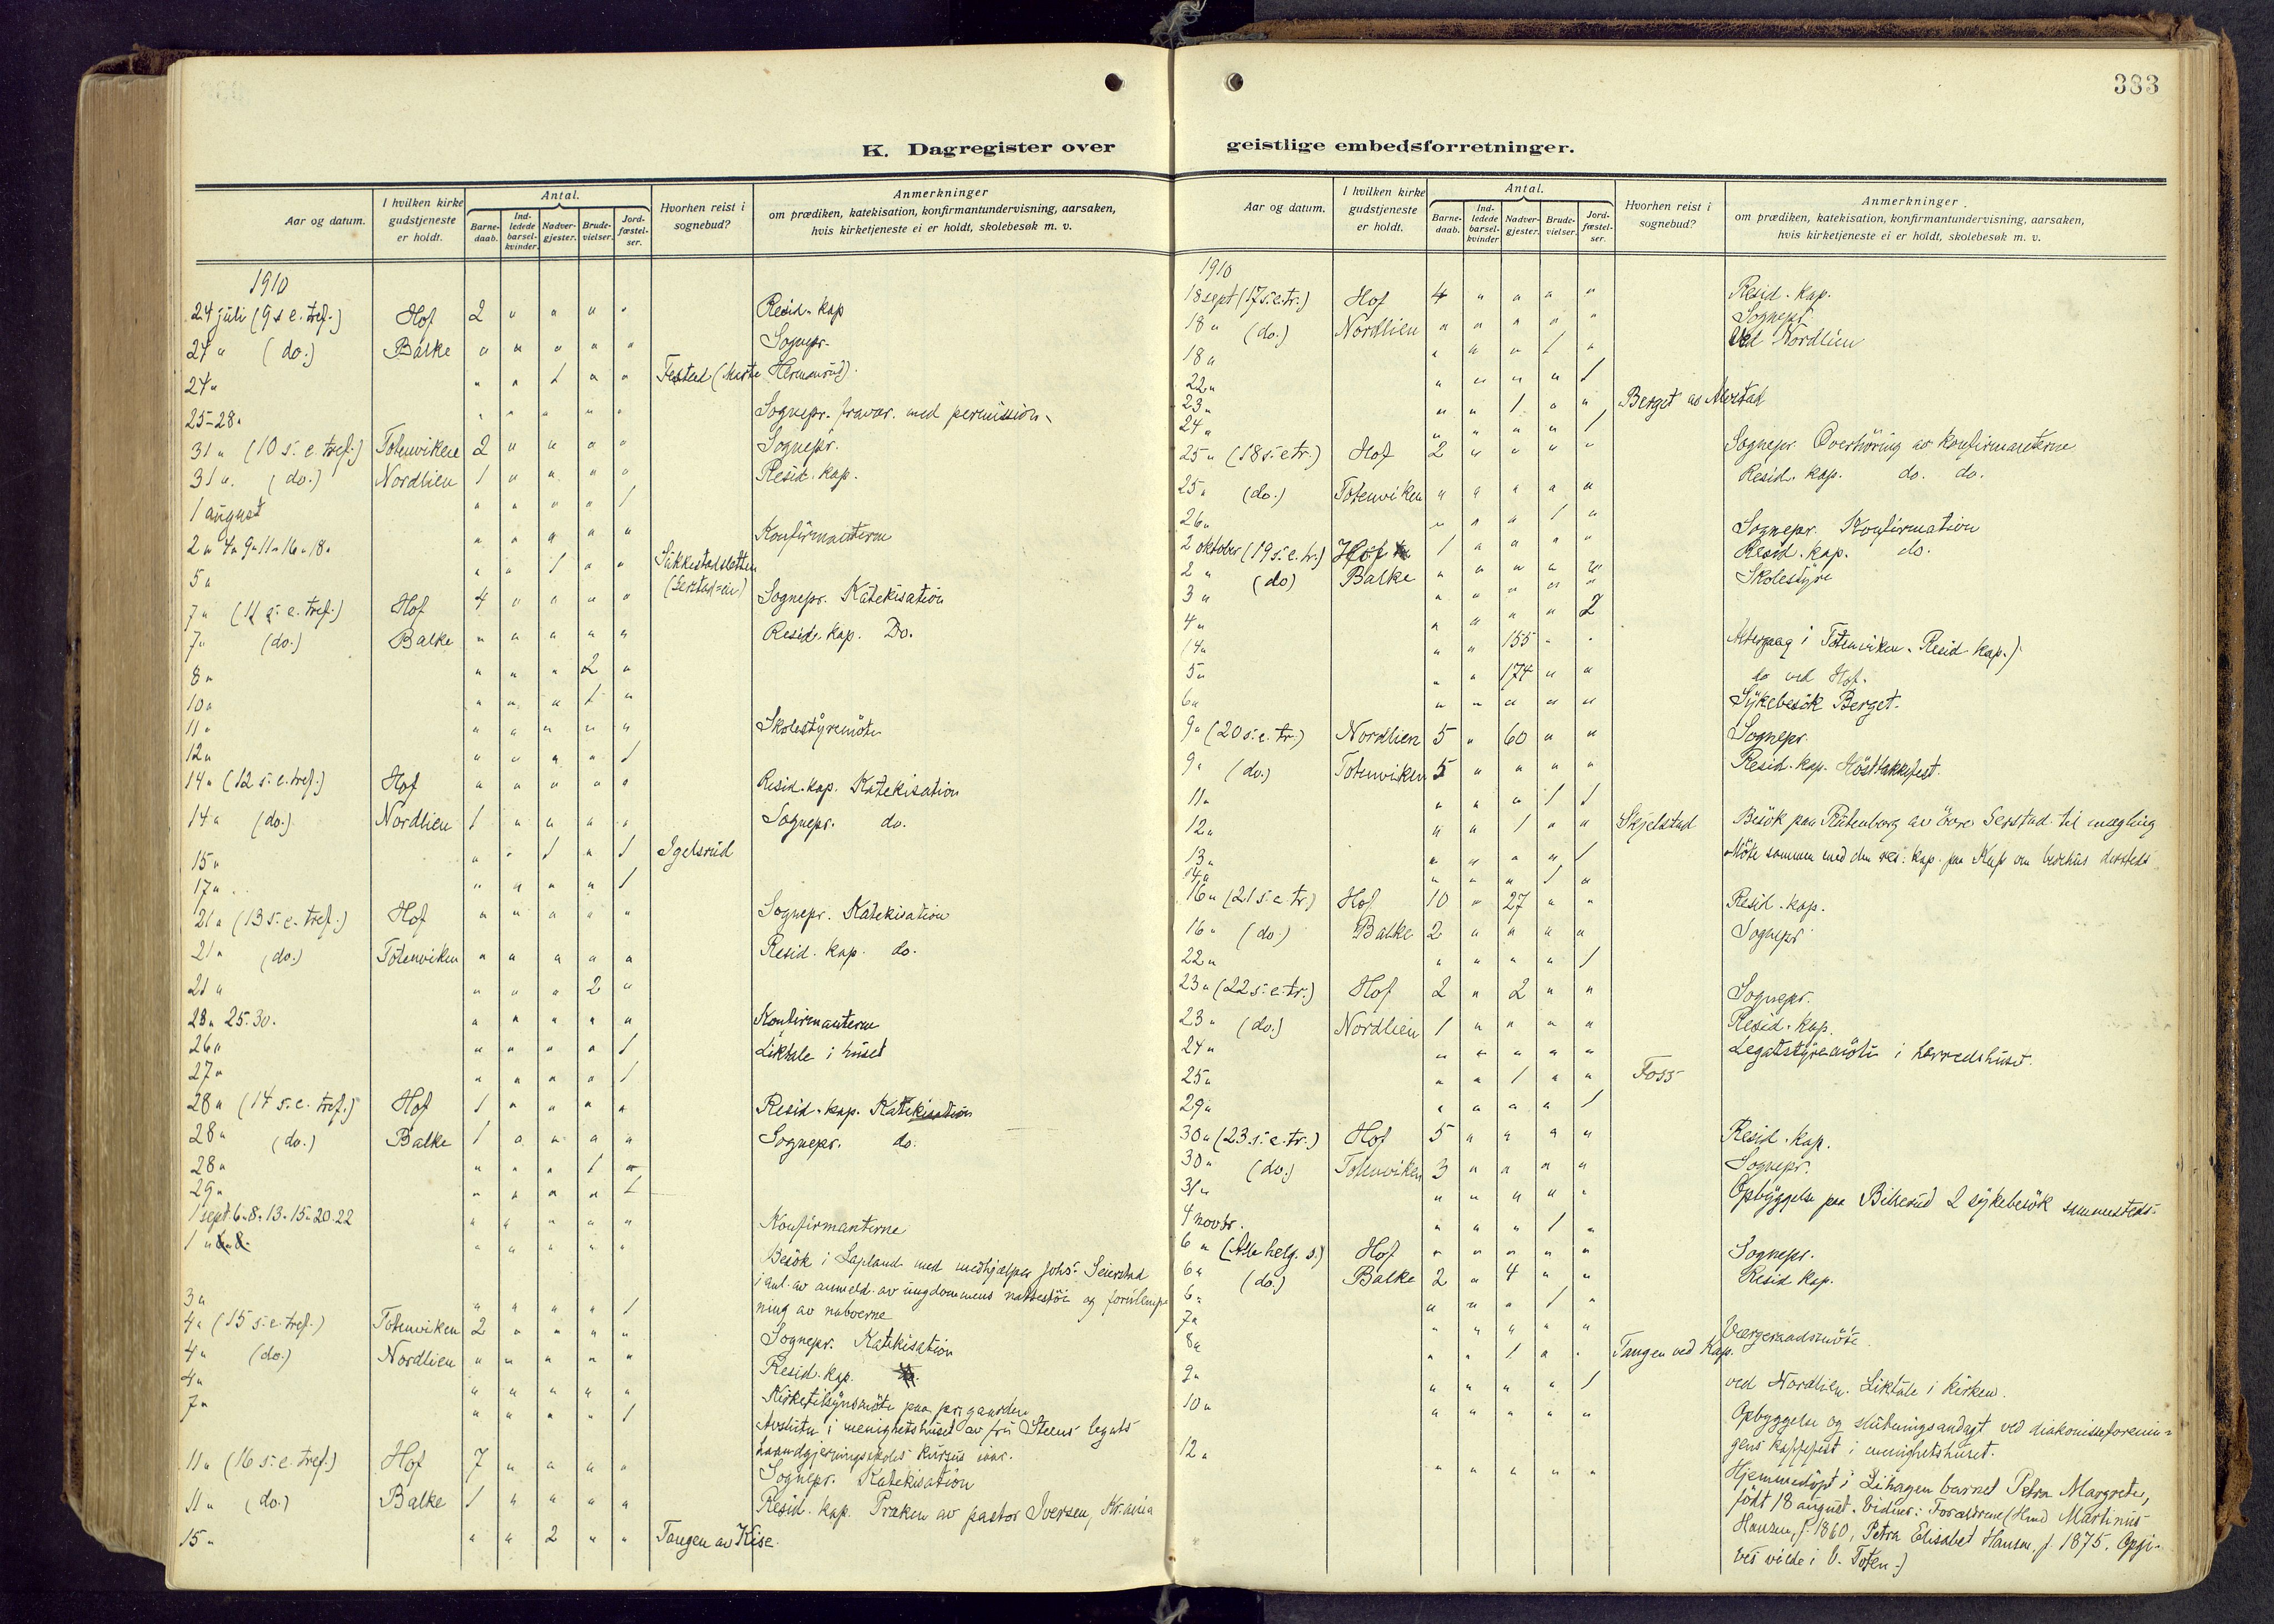 K. Dagregister over
Aar og datum.
I hvilken kirke gudstjeneste er holdt.
Antal.
Barnedaab.
Indledede barselkvinder.
Nadvergjester.
Brudevielser.
Jordfæstelser.
Hvorhen reist i sognebud?
Anmerkninger
om prædiken, katekisation, konfirmantundervisning, aarsaken,
hvis kirketjeneste ei er holdt, skolebesøk m. v.
1910
24 juli (9 s e. tref.) Hof 2 " " " " Resid. kap
24 " (do.) Balke " " " " " Sognepr.
24 " " " 1 " "
25-28 " " " " " " Sognepr. fravær. med permission
31 " (10 s. e. tref.) Totenviken 2 " " " " Sognepr.
31 " (do.) Nordlien 1 " " " " Resid. kap.
1 august " " " " 1
2 " 4 " 9 " 11 " 16 " 18 " " " " " " Konfirmanterne
5 " " " 1 " " Sukkestadsletten
7 " (11 s. e. tref.) Hof 4 " " " " Sognepr. Katekisation
7 " (do.) Balke " " " " " Resid. kap. Do.
8 " " " " 2 "
10 " " " " 1 "
11 " " " " " " Skolestyremöte
12 " " " " " 1
14 " (12 s. e. tref.) Hof " " " " " Resid. kap. Katekisation
14 " (do.) Nordlien 1 " " " " Sognepr. do.
15 " " " 1 " 1 Igelsrud
17 " " " " " 1
21 " (13 s. e. tref.) Hof " " " " " Sognepr. Katekisation
21 " (do.) Totenviken " " " " " Resid. kap. do.
21 " " " " 2 "
23 " 25. 30. " " " " " Konfirmanterne
26 " " " " " 1 Liktale i huset
27 " " " " " 1
28 " (14 s. e. tref.) Hof 1 " " " " Resid. kap. Katekisation
28 " (do.) Balke 1 " " " " Sognepr. do.
28 " " " " 1 "
29 " " " " " 1
1 sept. 6. 8. 13. 15. 20. 22 " " " " " Konfirmanterne
1 " " " " " " Besök i Lapland med medhjælper Johs. Seierstad
i anl. av anmeld. av ungdommens
ning av naboerne
3 " " " " " 1
4 " (15 s. e. tref.) Totenviken 2 " " " " Sognepr. Katekisation
4 " (do.) Nordlien " " " " " Resid. kap.
4 " " " " " " Kirketilsynsmöte paa pr. gaarden
7 " " " " " 1 Avslutn. i menighetshuset av fru Steens legats
haandgjerningsskoles kursus
11 " (16 s. e. tref.) Hof 7 " " " " Sognepr. Katekisation
11 " (do.) Balke 1 " " " " Resid. kap. Præken av pastor Iversen, Kr.ania
15 " " " 2 " " Tangen av Kise
383
geistlige embedsforretninger.
Aar og datum.
I hvilken kirke gudstjeneste er holdt.
Antal.
Barnedaab.
Indledede barselkvinder
Nadvergjester.
Brudevielser.
Jordfæstelser.
Hvorhen reist i sognebud?
Anmerkninger.
om prædiken, katekisation, konfirmantundervisning, aarsaken,
hvis kirketjeneste ei er holdt, skolebesøk m. v.
1910
18 sept (17 s. e. tr.) Hof 4 " " " " Resid. kap.
18 " (do.) Nordlien " " " " " Sognepr.
18 " " " " 1 " Ved Nordlien
22 " " " " " 1
23 " " " 1 " " Berget av Alvstad
24 " " " " " 1
25 " (18 s. e. tr.) Hof 2 " " " " Sognepr. Overhöring av konfirmanterne
25 " (do.) Totenviken " " " " " Resid. kap. do. do.
26 " " " " 1 "
2 oktober (19 s. e. tr.) Hof 1 " " " " Sognepr. Konfirmation
2 " (do) Balke " " " " " Resid. kap. do.
3 " " " " " " Skolestyre
4 " " " " " 2
" " 155 " " Altergang i Totenviken. Resid. kap.)
5 " " " 174 " " do ved Hof.
6 " " " " " " Sykebesök Berget.
9 " (20 s. e. tr.) Nordlien 5 " 60 " " Sognepr.
9 " (do.) Totenviken 5 " " " " Resid. kap. Hösttakkefest.
11 " " " " 1 1
12 " " " 1 " " Skjelstad Besök paa Rutenborg av övre Seistad til mægling
13 " " " " " 1 Möte sammen med den res. kap. paa Kap om bedehus dersteds
14 " " " " 1 "
16 " (21 s. e. tr.) Hof 10 " 27 " " Resid. kap.
16 " (do.) Balke 2 " " " " Sognepr
22 " " " " " 1
23 " (22 s. e. tr.) Hof 2 " 2 " " Sognepr.
23 " (do.) Nordlien 1 " " " " Resid. kap.
24 " " " " " " Legatstyremöte i herredshuset.
25 " " " 1 " " Foss
29 " " " " " 1
30 " (23. s. e. tr.) Hof 5 " " " " Resid. kap.
30 " (do.) Totenviken 3 " " " " Sognepr.
31 " " " " " " Opbyggelse paa Bilserud 2 sykebesök sammesteds.
4 novbr. " " " 1 "
6 " (Alle helg. s.) Hof " " " " " Sognepr.
6 " (do.) Balke 2 " 4 " " Resid kap.
6 " " " " 1 "
7 " " " " " " Værgeraadsmöte.
8 " " " 1 " " Tangen ved Kap.
9 " " " " " 1 ved Nordlien. Liktale i kirken.
10 " " " " " " Opbyggelse og slutningsandagt ved diakonisseforenin-
gens kaffefest i menighetshuset.
12 " " " " " " Hjemmedöpt i Lihagen barnet Petra Margrete,
födt 18 august. Vidner: Forældrene (Hmd Martinius
Hansen, f. 1860, Petra Elisabet Hansen, f. 1875. Opgi-
ves viede i V. Toten.)